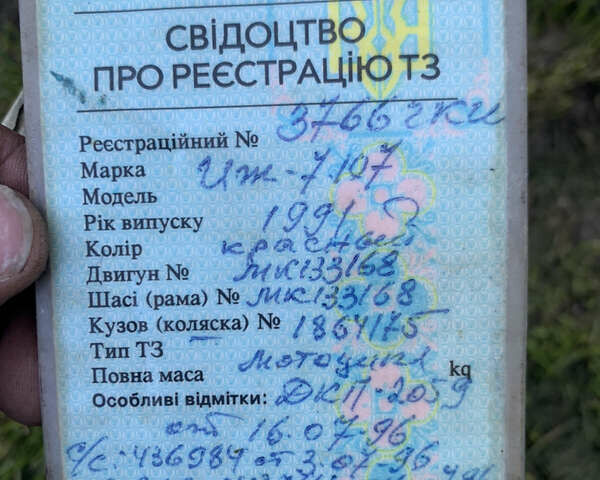 СВІДОЦТВО
ПРО РЕЄСТРАЦІЮ ТЗ
Реєстраційний № 3766 ЧКИ
Марка Иж-7.107
Модель
Рік випуску 1991
Колір красный
Двигун № МК133168
Шасі (рама) № МК133168
Кузов (коляска) № 1864175
Тип ТЗ мотоцикл
Повна маса kg
Особливі відмітки: ДКП-2059
от 16.07.96
с/с: 436984 от 3.07.96